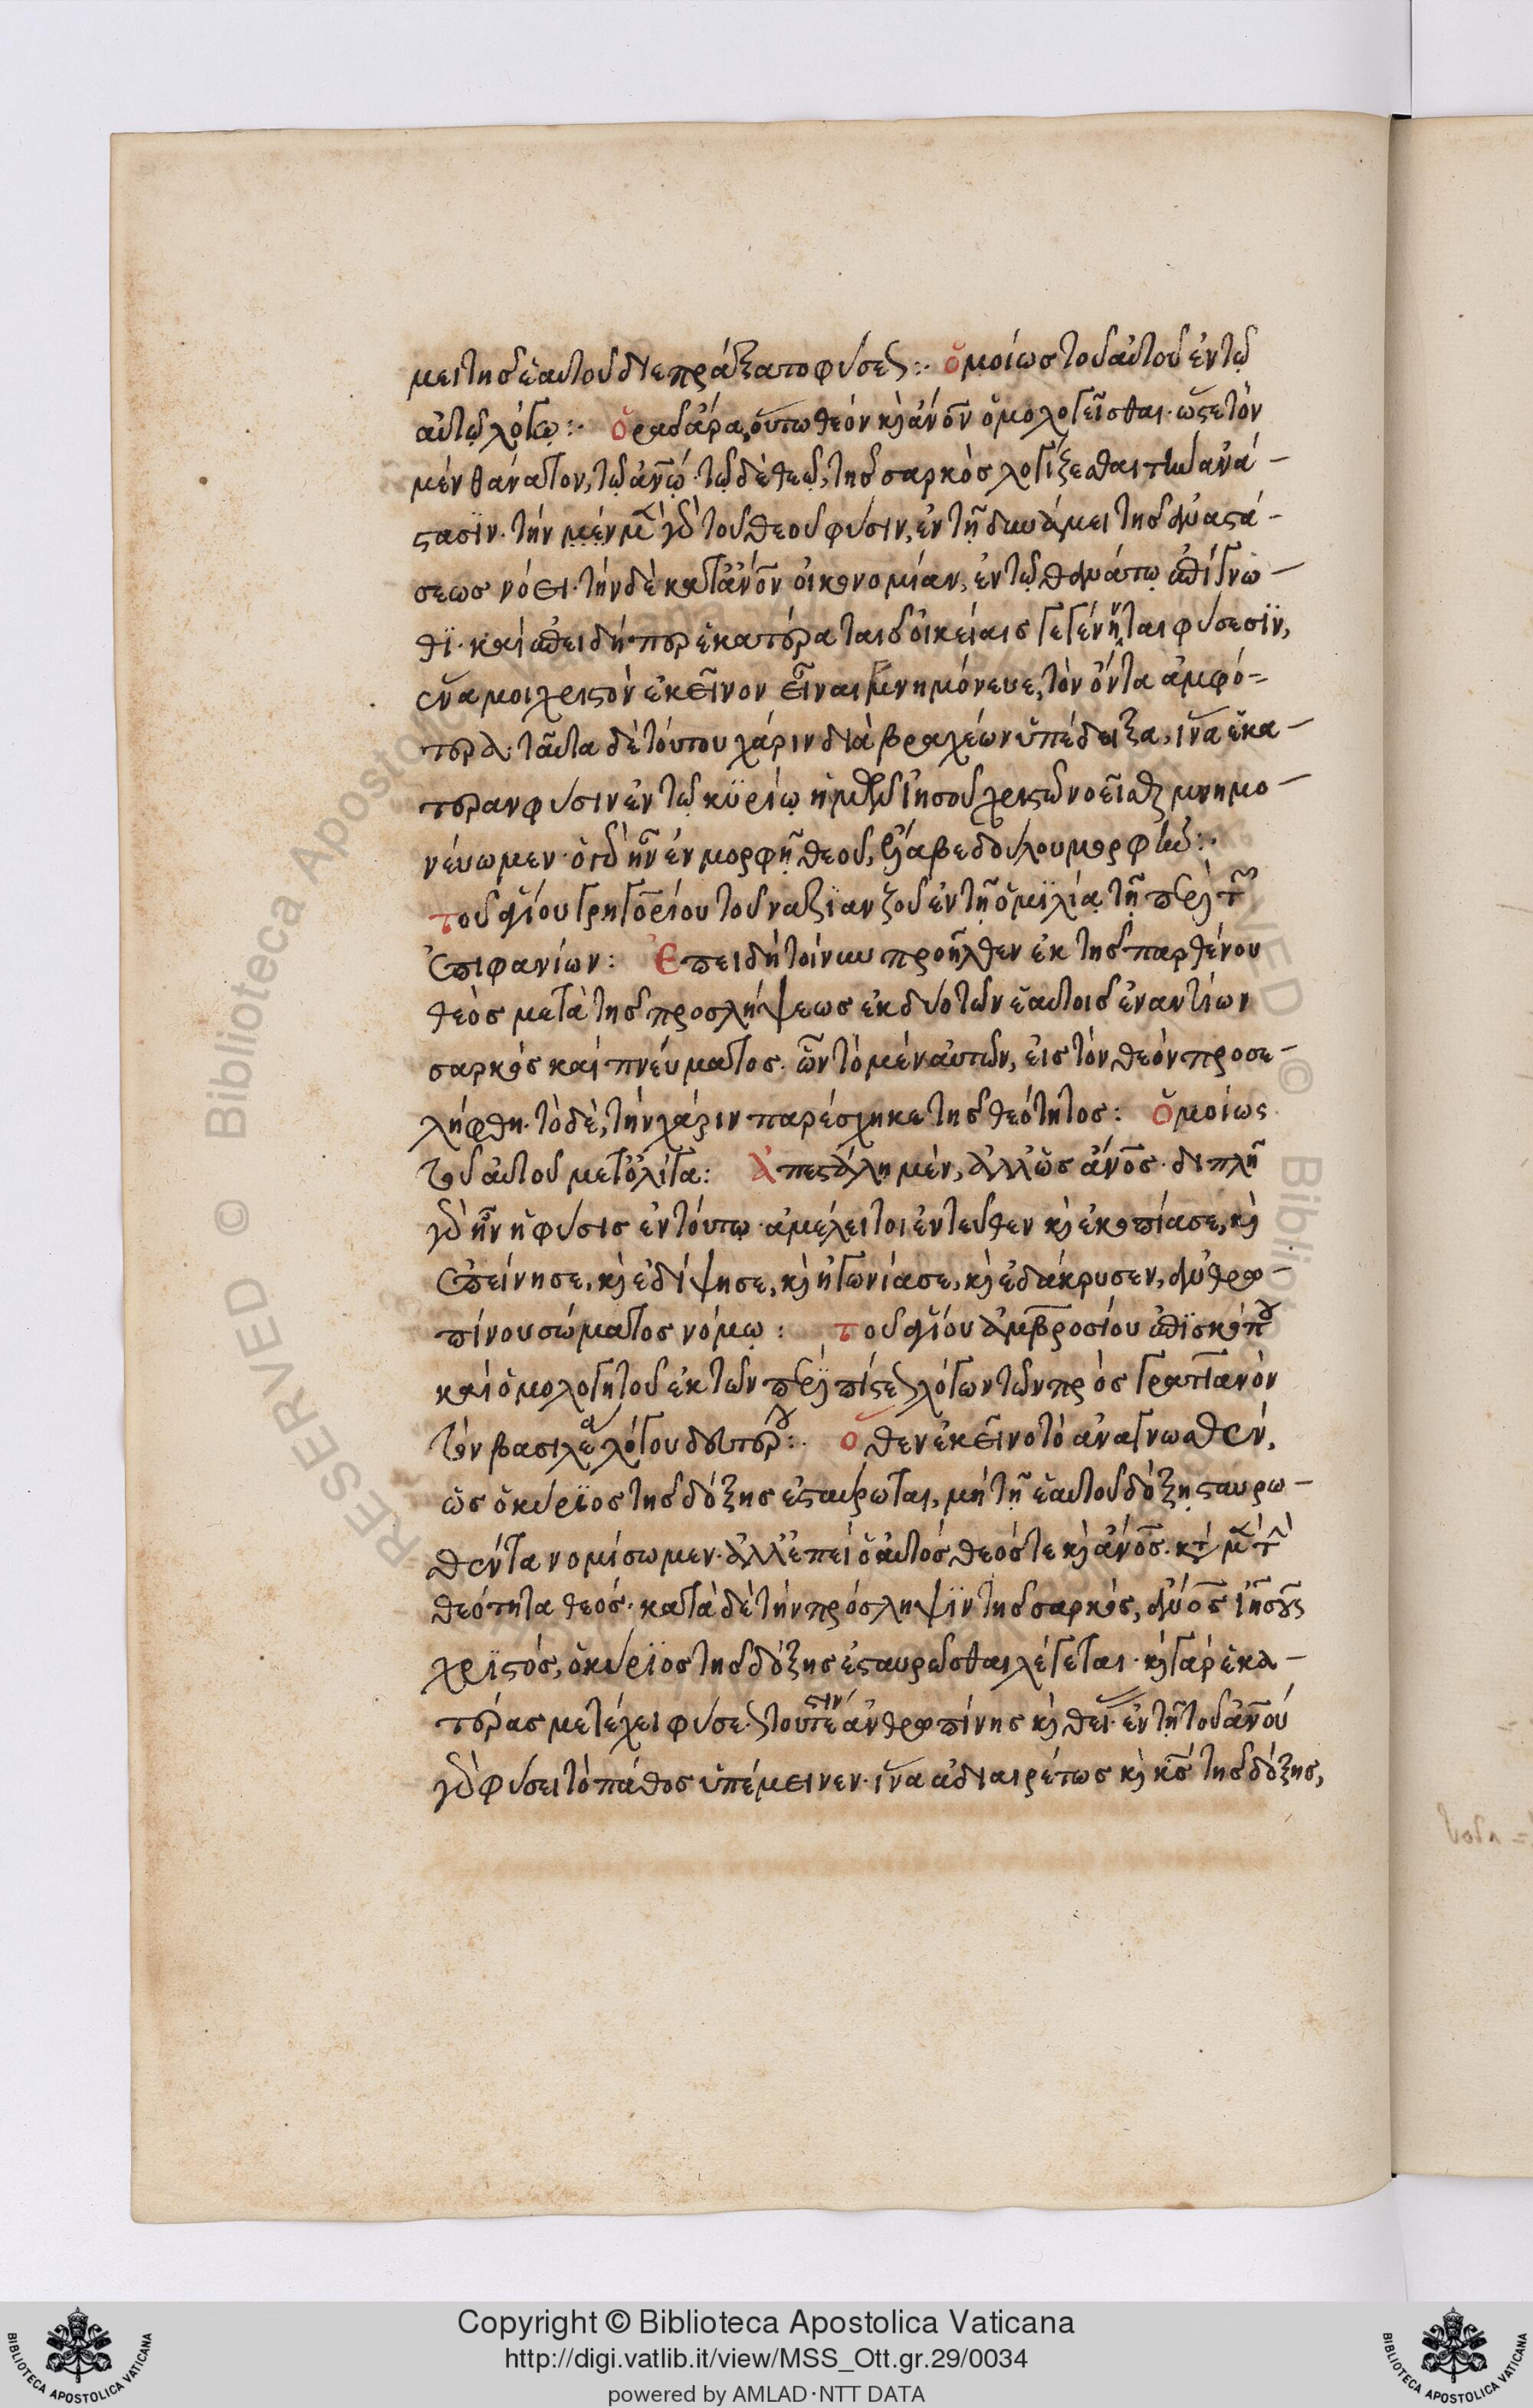 μει της ἑαυτοῦ διεπράξατο φύσεως:· ὁμοίως τοῦ αὐτοῦ ἐν τῷ
αὐτῷ λόγῳ:· ὁρᾶς ἄρα, οὕτω θεὸν κ(αὶ) ἄνον ὁμολογεῖσθαι· ὥστε τὸν
μὲν θάνατον, τῷ ἀνῳ· τῷ δὲ θεῷ, τῆς σαρκὸς λογίζεσθαι τὴν ἀνά-
στασϊν· τὴν μὲν γὰρ τοῦ θεοῦ φύσιν, ἐν τῇ δυνάμει τῆς ἀναστά-
σεως νόει· τὴν δὲ κατ' ἄνον οἰκονομίαν, ἐν τῷ θανάτῳ ἐπίγνω-
θϊ· καὶ ἐπειδήπερ ἑκατέρα ταῖς οἰκείαις γεγένηνται φύσεσϊν,
ἕνα μοι χριστὸν ἐκεῖνον εἶναι μνημόνευε, τὸν ὄντα ἀμφό-
τερα: ταῦτα δὲ τούτου χάριν διὰ βραχέων ὑπέδειξα, ἵνα ἑκα-
τέραν φύσιν ἐν τῷ κϋρίῳ ἡμῶν ἰησοῦ χριστῷ νοεῖσθαι μνημο-
νεύωμεν· ὃς γὰρ ἦν ἐν μορφῇ θεοῦ, ἔλαβε δούλου μορφήν:·
τοῦ ἁγίου γρηγορίου τοῦ ναζϊανζοῦ ἐν τῇ ὁμϊλίᾳ τῇ περὶ τῶν
ἐπιφανίων: Ἐπειδὴ τοίνυν προῆλθεν ἐκ τῆς παρθένου
θεὸς μετὰ τῆς προσλήψεως ἐκ δυο τῶν ἑαυτοῖς ἐναντίων
σαρκὸς καὶ πνεύματος. ὧν τὸ μὲν αὐτῶν, εἰς τὸν θεὸν προσε-
λήφθη. τὸ δὲ, τὴν χάριν παρέσχηκε τῆς θεότητος: ὁμοίως
τοῦ αὐτοῦ μετ' ὀλίγα: Ἀπεστάλη μὲν, ἀλλ' ὡς ἄνος· διπλῆ
γὰρ ἦν ἡ φύσις ἐν τούτῳ· ἀμέλει τοι ἐντεῦθεν κ(αὶ) ἐκοπίασε, κ(αὶ)
ἐπείνησε, κ(αὶ) ἐδίψησε, κ(αὶ) ἠγωνίασε, κ(αὶ) ἐδάκρυσεν, ἀνθρω-
πίνου σώματος νόμῳ: τοῦ ἁγίου ἀμβροσίου ἐπϊσκόπου
καὶ ὁμολογητοῦ ἐκ τῶν περὶ πίστεως λόγων τῶν πρὸς γρατϊανὸν
τὸν βασιλέα λόγου δευτέρου:· ὅθεν ἐκεῖνο τὸ ἀναγνωσθὲν,
ὡς ὁ κύρϊος τῆς δόξης ἐσταύρωται, μὴ τῇ ἑαυτοῦ δόξῃ σταυρω-
θέντα νομίσωμεν· ἀλλ' ἐπεὶ ὁ αὐτὸς θεός τε κ(αὶ) ἄνος. κατὰ μὲν τὴν
θεότητα θεός· κατὰ δὲ τὴν πρόσληψϊν τῆς σαρκὸς, ἄνος ἰησοῦς
χρϊστός, ὁ κύρϊος τῆς δόξης ἐσταυρῶσθαι λέγεται· κ(αὶ) γὰρ ἑκα-
τέρας μετέχει φύσεως τουτέστιν ἀνθρωπίνης κ(αὶ) θείας· ἐν τῇ τοῦ ἀνοῦ
γὰρ φύσει τὸ πάθος ὑπέμεινεν· ἵνα ἀδιαιρέτως κ(αὶ) κς τῆς δόξης,
Copyright © Biblioteca Apostolica Vaticana
http://digi.vatlib.it/view/MSS_Ott.gr.29/0034
powered by AMLAD·NTT DATA
BIBLIOTECA APOSTOLICA VATICANA
BIBLIOTECA APOSTOLICA VATICANA